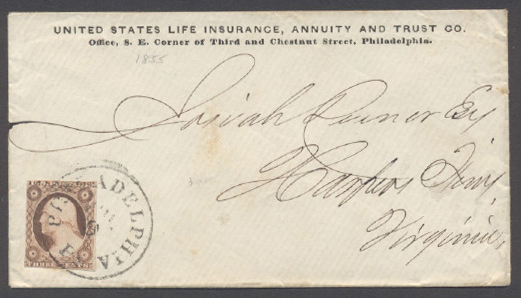 UNITED STATES LIFE INSURANCE, ANNUITY AND TRUST CO.
Office, S. E. Corner of Third and Chestnut Street, Philadelphia.
1855
Josiah Esq
Harpers Ferry
Virginia
PHILADELPHIA Pa.
THREE CENTS